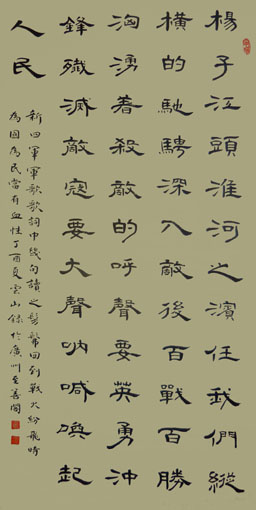 楊子江頭淮河之濱任我們縱
橫的馳騁深入敵後百戰百勝
洶湧着殺敵的呼聲要英勇沖
鋒殲滅敵寇要大聲吶喊喚起
人民
新四軍軍歌歌詞中幾句讀之髣髴回到戰火紛飛時
為國為民當有血性丁酉夏雲山錄於廣州至善閣